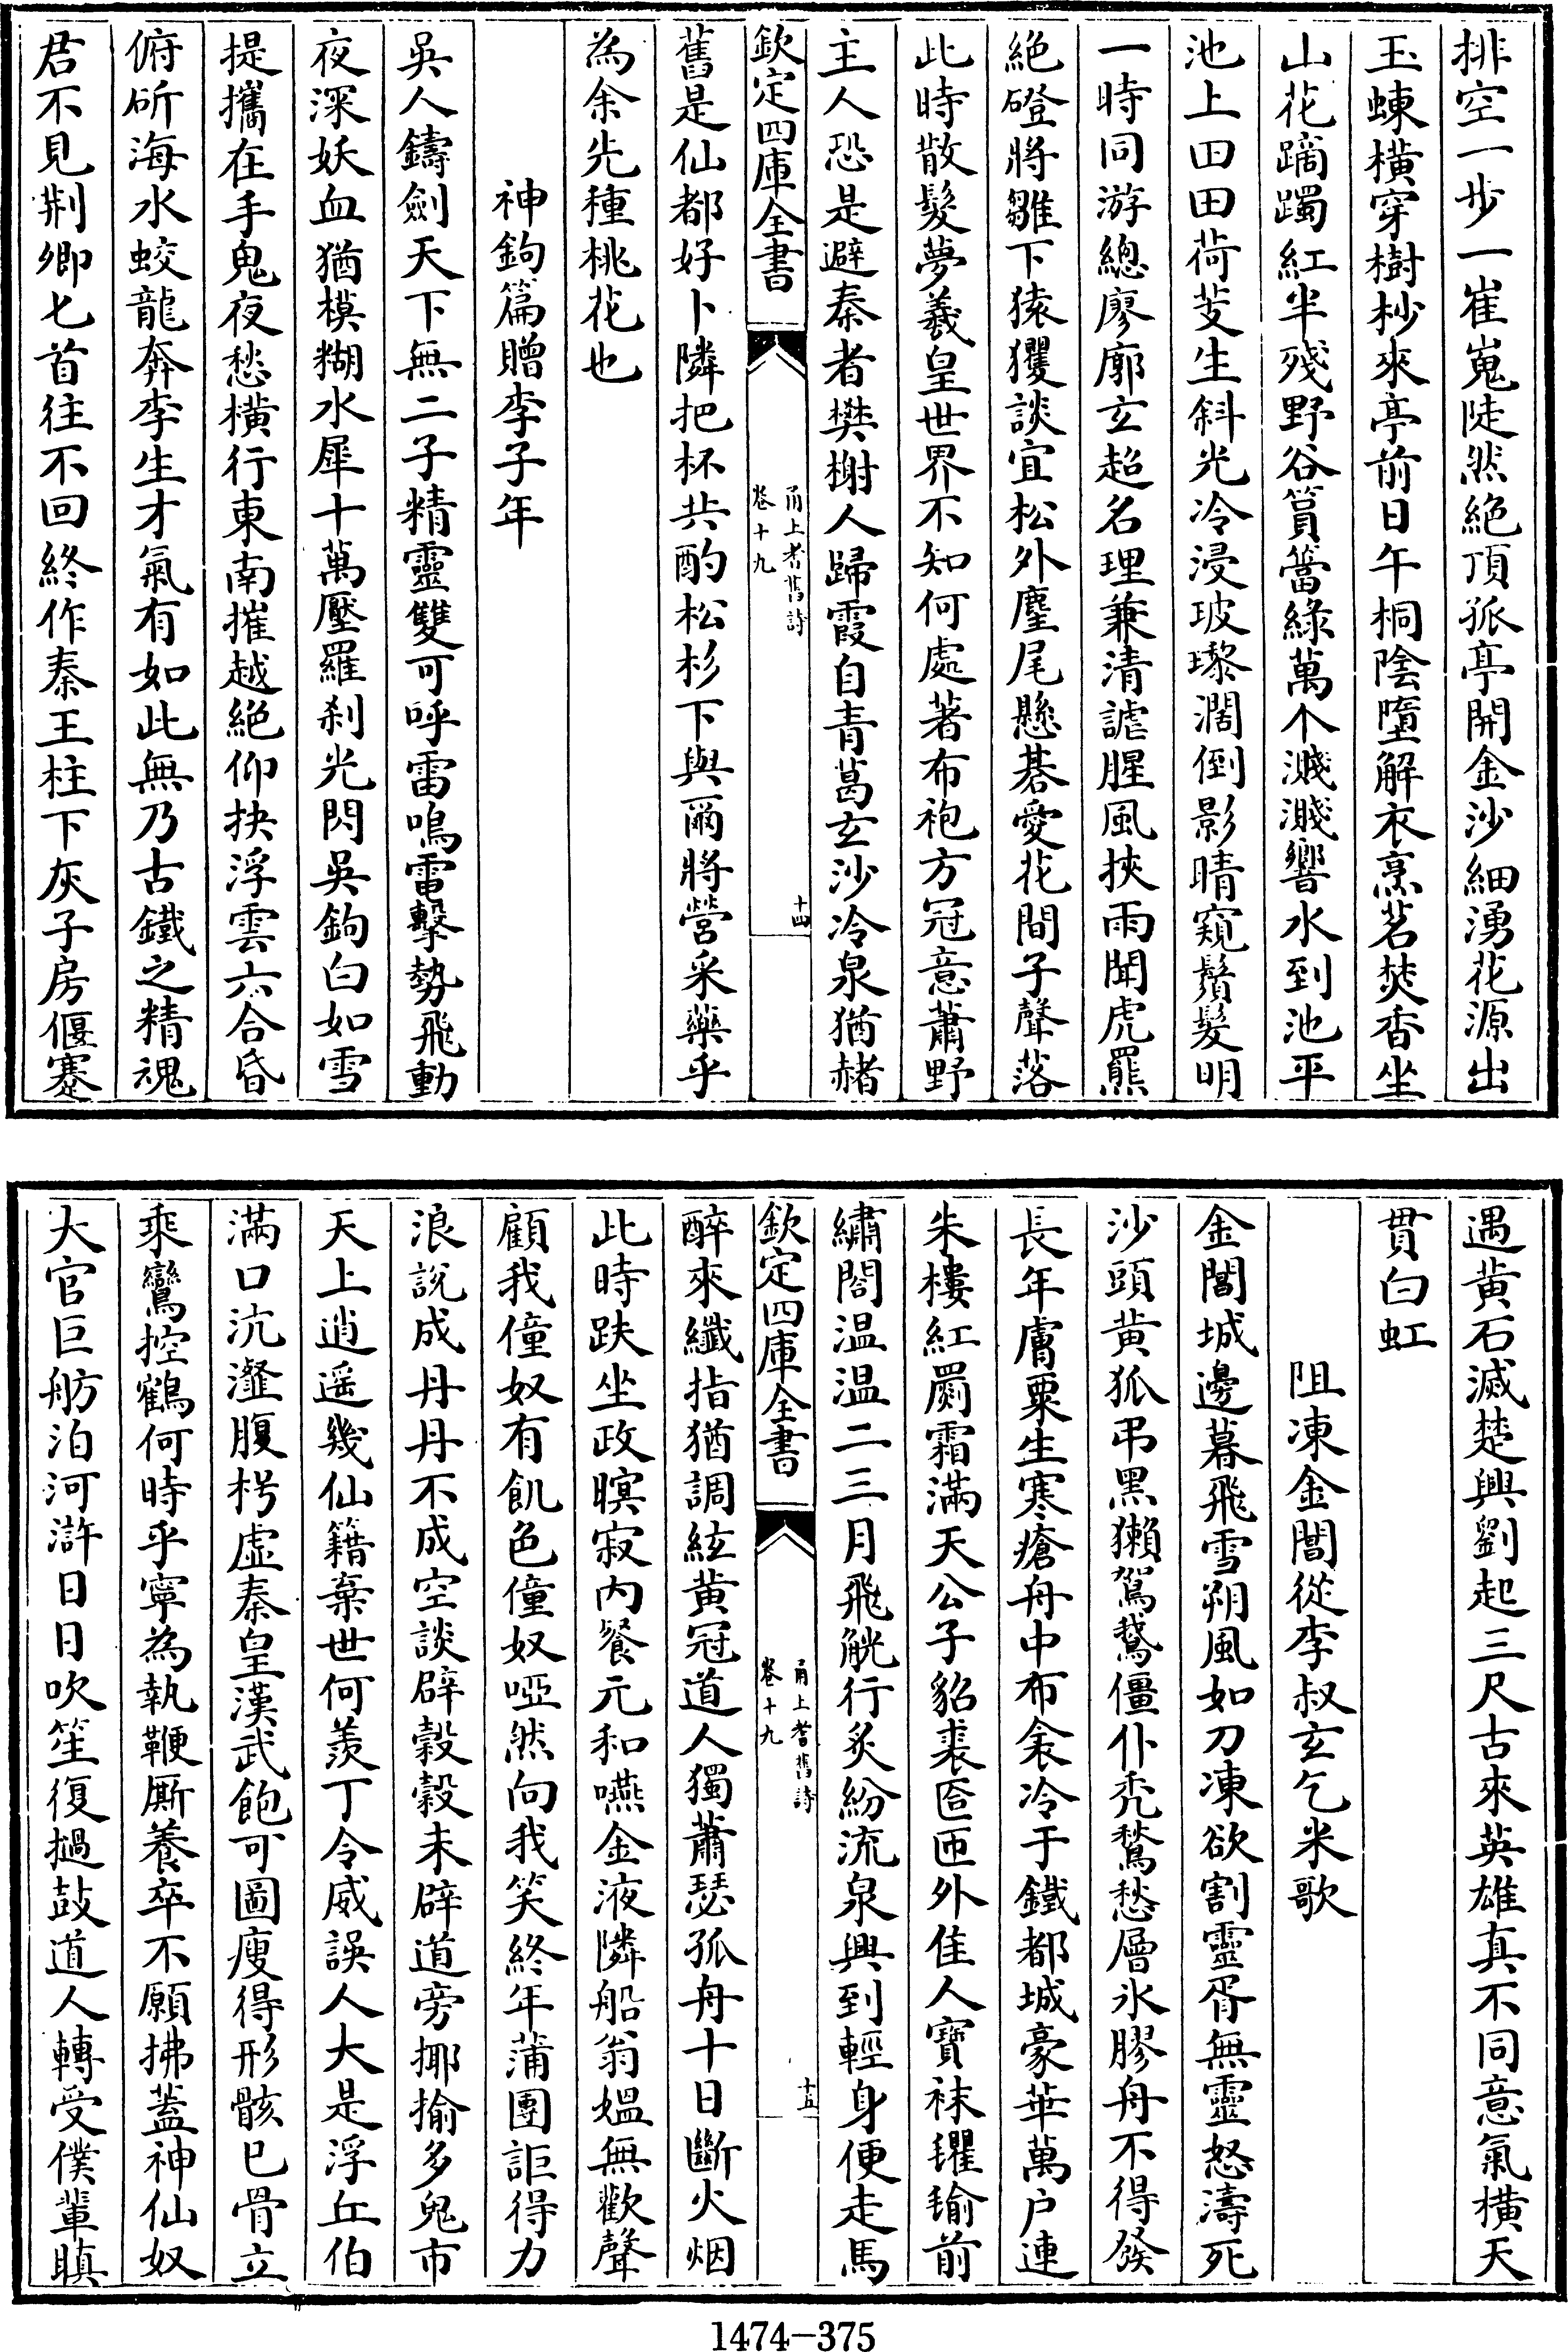 排空一步一崔嵬陡然絕頂孤亭開金沙細湧花源出
玉蝀橫穿樹杪來亭前日午桐陰墮解衣烹茗焚香坐
山花躑躅紅半殘野谷篔簹綠萬个濺濺響水到池平
池上田田荷芰生斜光冷浸玻瓈濶倒影晴窺鬚髮明
一時同游總廖廓玄超名理兼清謔腥風挾雨聞虎羆
絕磴將雛下猿玃談宜松外麈尾懸碁愛花間子聲落
此時散髮夢羲皇世界不知何處著布袍方冠意蕭野
主人恐是避秦者樊榭人歸霞自青葛玄沙冷泉猶赭
欽定四庫全書
甬上耆舊詩
卷十九
十四
舊是仙都好卜隣把杯共酌松杉下與爾將營采藥乎
為余先種桃花也
神鉤篇贈李子年
吳人鑄劍天下無二子精靈雙可呼雷鳴電擊勢飛動
夜深妖血猶模糊水犀十萬壓羅刹光閃吳鉤白如雪
提攜在手鬼夜愁橫行東南摧越絕仰抉浮雲六合昏
俯斫海水蛟龍奔李生才氣有如此無乃古鐵之精魂
君不見荆卿七首往不回終作秦王柱下灰子房偃蹇
遇黃石滅楚興劉起三尺古來英雄真不同意氣橫天
貫白虹
阻凍金閶從李叔玄乞米歌
金閶城邊暮飛雪朔風如刀凍欲割靈胥無靈怒濤死
沙頭黃狐弔黑獺鴐鵞僵仆禿鶖愁層氷膠舟不得發
長年膚粟生寒瘡舟中布衾冷于鐵都城豪華萬户連
朱樓紅罽霜滿天公子貂裘匼匝外佳人寶襪氍毹前
繡閤温温二三月飛觥行炙紛流泉興到輕身便走馬
欽定四庫全書
甬上耆舊詩
卷十九
十五
醉來纖指猶調絃黃冠道人獨蕭瑟孤舟十日斷火烟
此時趺坐政瞑寂内餐元和嚥金液隣船翁媪無歡聲
顧我僮奴有飢色僮奴啞然向我笑終年蒲團詎得力
浪說成丹丹不成空談辟穀穀未辟道旁揶揄多鬼市
天上逍遥幾仙籍棄世何羨丁令威誤人大是浮丘伯
滿口沆瀣腹枵虛秦皇漢武飽可圖瘦得形骸已骨立
乘鸞控鶴何時乎寧為執鞭厮養卒不願拂蓋神仙奴
大官巨舫泊河滸日日吹笙復撾鼓道人轉受僕輩瞋
1474-375